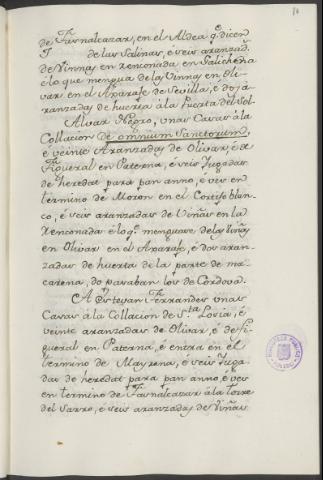 de Faznalcazar, en el Aldea q. dicen
T de las Salinas, é seis aranzad.
de Vinnas en renconada, en Salicheña
é lo que mengua de las Vinnas en Oli-
var en el Axarafe de Sevilla, é dos a-
ranzadas de huerta á la Puerta del Sol.
Alvar Negro, unas Casas á la
Collacion de omnium Sanctorum,
é veinte Aranzadas de Olivar, é de
Figueral en Paterna, é seis Jugadas
de heredat para pan anno, é vez en
termino de Moron en el Cortijo blan-
co, é seis aranzadas de Viñas en la
Renconada é lo q. menguare de las Viñas
en Olivar en el Axarafe, é dos aran-
zadas de huerta de la parte de ma-
carena, do posaban los de Cordova.
A Esteyan Ferrandes unas
Casas á la Collacion de Sta. Losia, é
veinte aranzadas de Olivar, é de Fi-
gueral en Paterna, é entra en el
termino de Mayrena, é seis Juga-
das de heredat para pan anno, é vez
en termino de Faznalcazar á la Torre
del Sarro, é seis aranzadas de Viñas